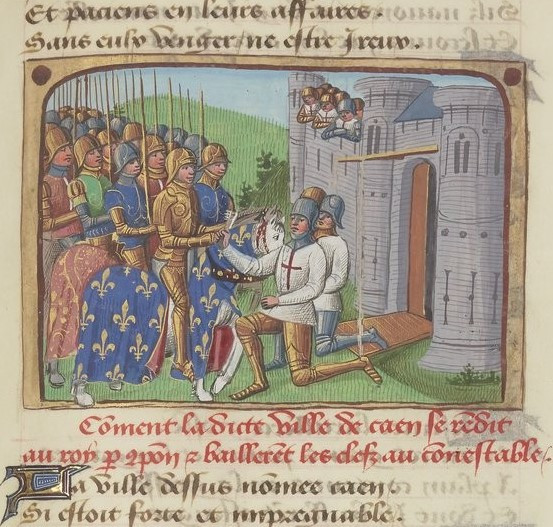 Et paciens en leurs affaires
Sans eulx venger ne estre Ireux.
Coment la dicte ville de caen se rēdit
au roy p cōpōn & baillerēt les clefz au conestable.
La ville dessus nōmee caen
Si estoit forte et impregnable